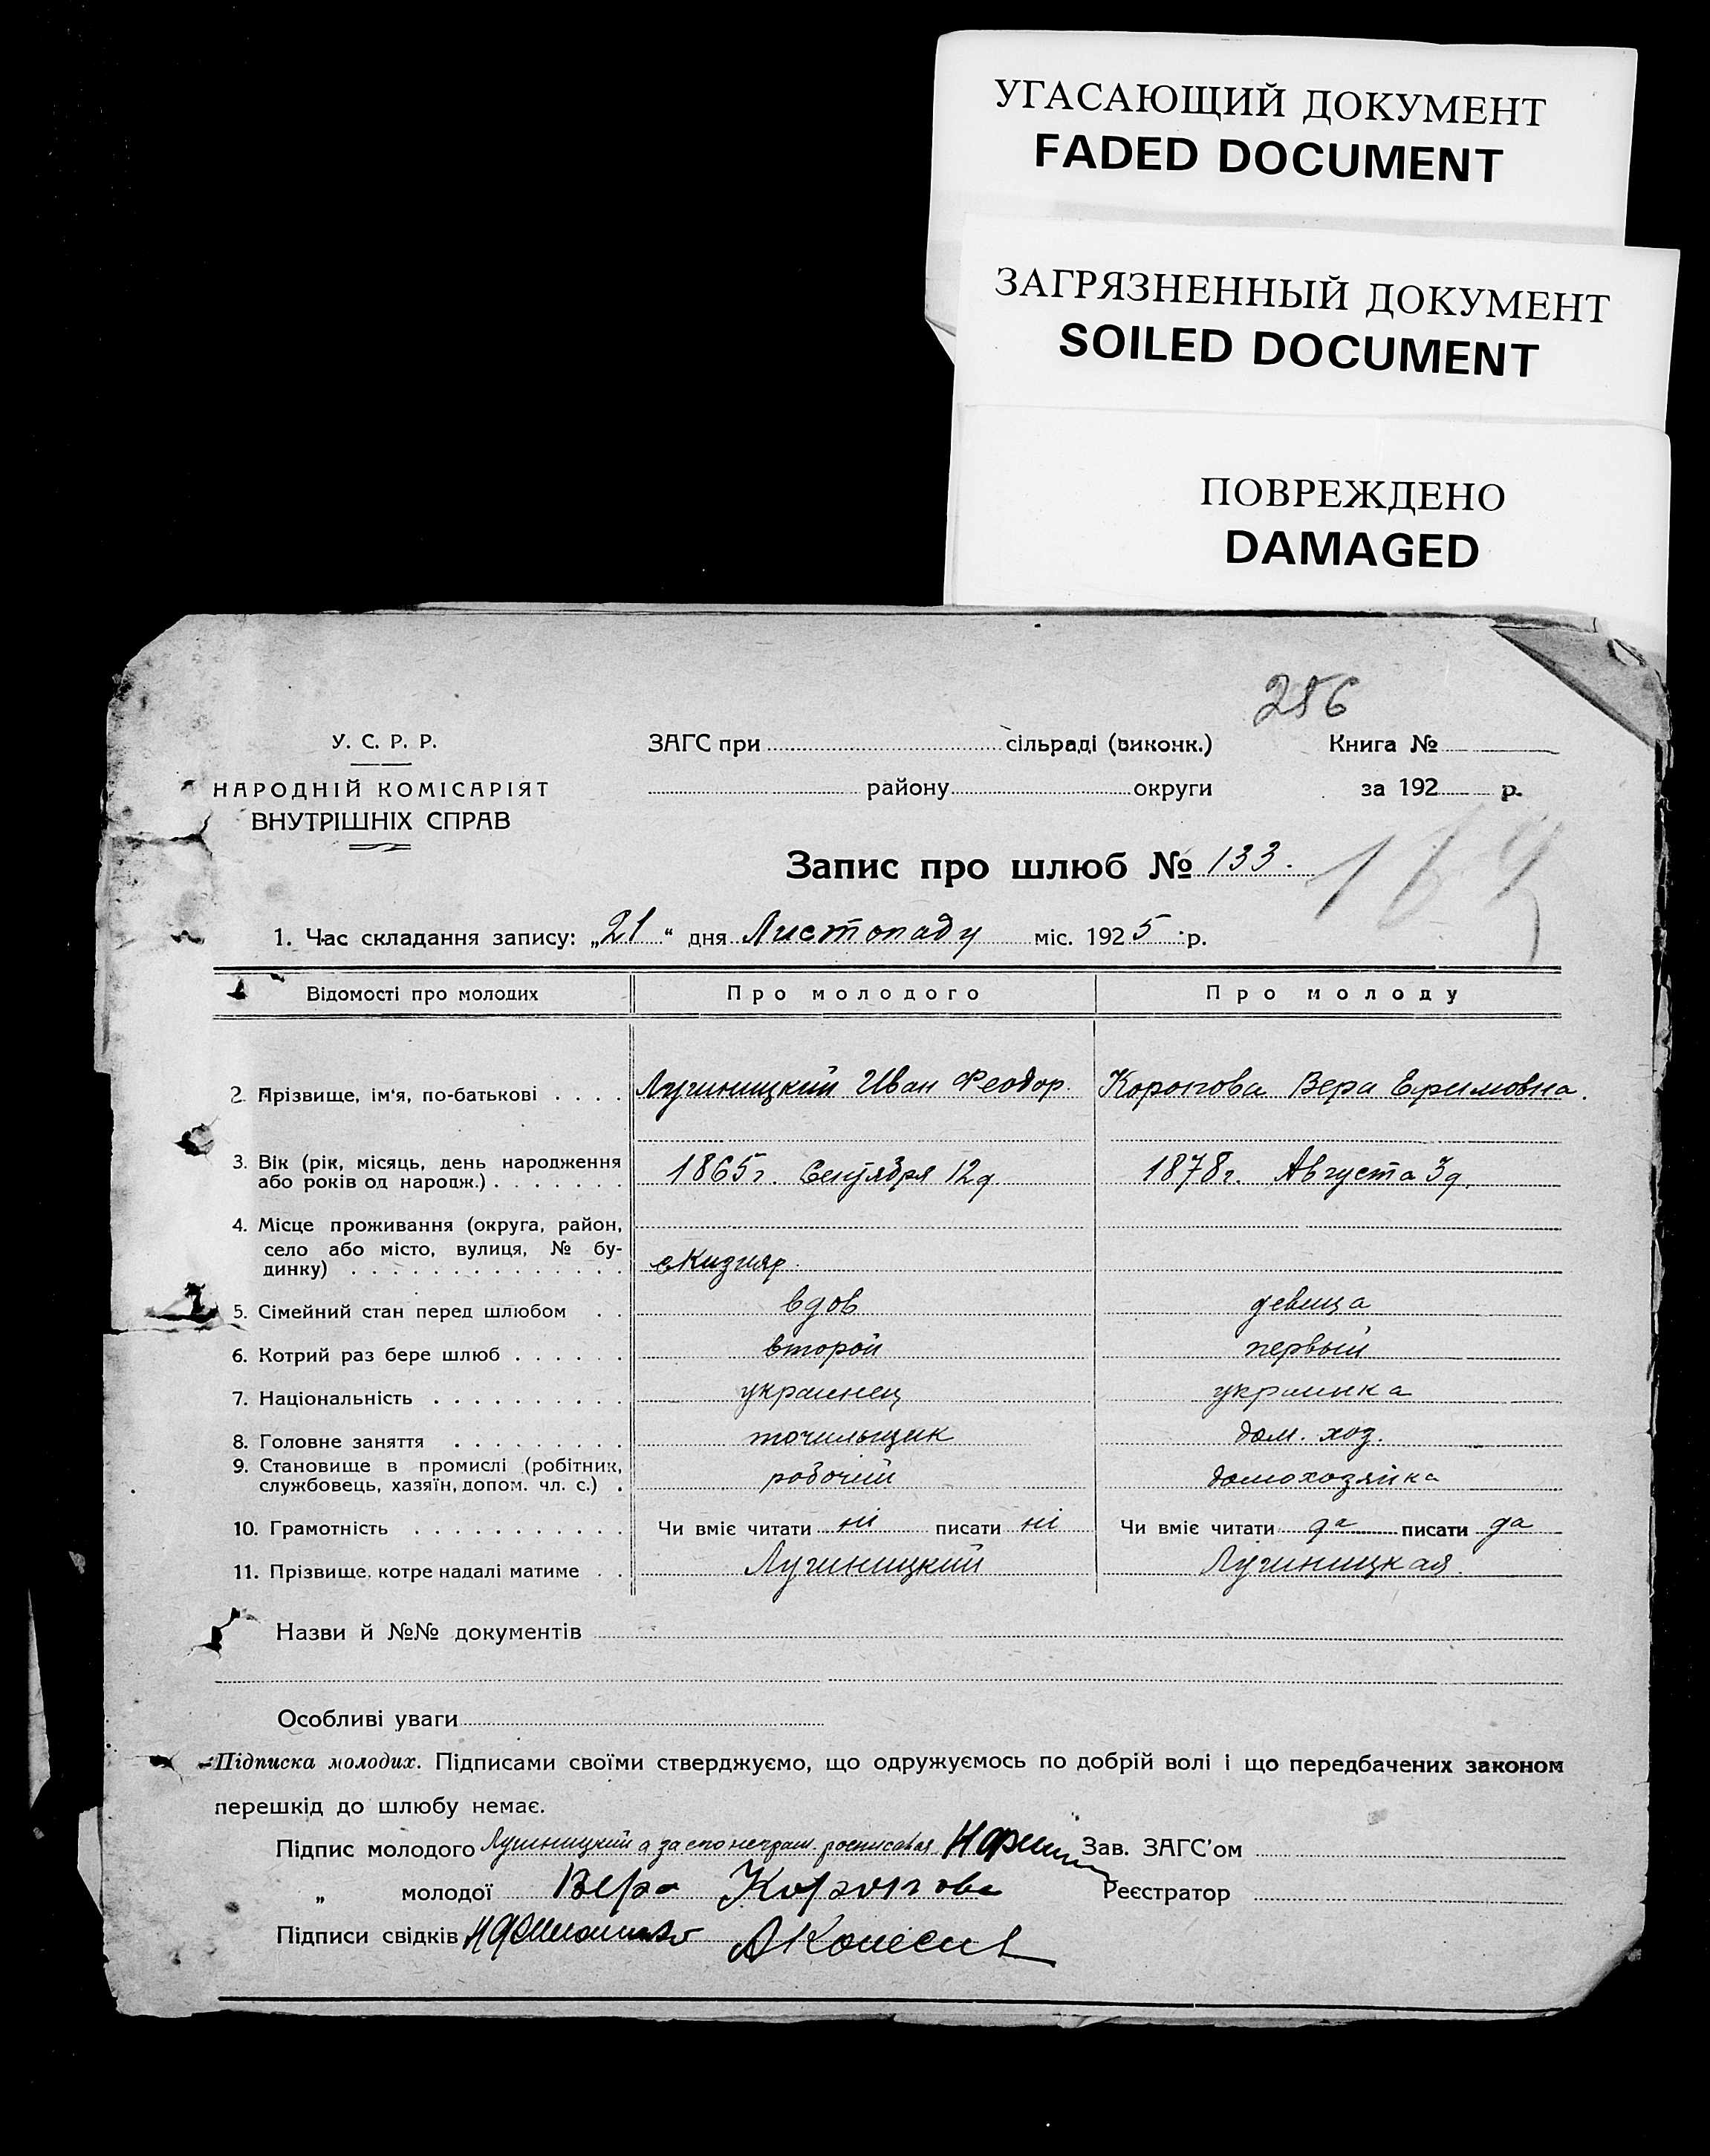 УГАСАЮЩИЙ ДОКУМЕНТ
FADED DOCUMENT
ЗАГРЯЗНЕННЫЙ ДОКУМЕНТ
SOILED DOCUMENT
ПОВРЕЖДЕНО
DAMAGED
286
У. С. Р. Р. ЗАГС при сільраді (виконк.) Книга №
НАРОДНІЙ КОМІСАРІЯТ району округи за 192 р.
ВНУТРІШНІХ СПРАВ
Запис про шлюб № 133.
169
1. Час складання запису: „21“ дня Листопаду міс. 1925 р.
Відомості про молодих Про молодого Про молоду
2. Прізвище, ім'я, по-батькові . . . . Иван Феодор. Коропова Вера Ефимовна.
3. Вік (рік, місяць, день народження
або років од народж.) . . . . . . . 1865 г. Сентября 12 д. 1878 г. Августа 3 д.
4. Місце проживання (округа, район,
село або місто, вулиця, № бу-
динку) . . . . . . . . . . . . . .
5. Сімейний стан перед шлюбом . . вдов девица
6. Котрий раз бере шлюб . . . . . . второй первый
7. Національність . . . . . . . . . . украинец украинка
8. Головне заняття . . . . . . . . . точильщик дом. хоз.
9. Становище в промислі (робітник,
службовець, хазяїн, допом. чл. с.) . робочий домохозяйка
10. Грамотність . . . . . . . . . . . Чи вміє читати ні писати ні Чи вміє читати да писати да
11. Прізвище, котре надалі матиме . .
Назви й №№ документів
Особливі уваги
Підписка молодих. Підписами своїми стверджуємо, що одружуємось по добрій волі і що передбачених законом
перешкід до шлюбу немає.
Підпис молодого а за его неграм. Зав. ЗАГС'ом
„ молодої Вера Коропова Реєстратор
Підписи свідків